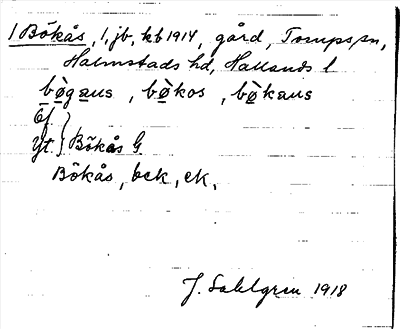 1 Bökås, 1, jb, kb 1914, gård, Tönnersjö sn,
Halmstads hd, Hallands l
bø̀gaus, bø̀kos, bø̀kaus
Öf.
Yt. } Bökås G
Bökås, bck, ck,
J. Sahlgren 1918